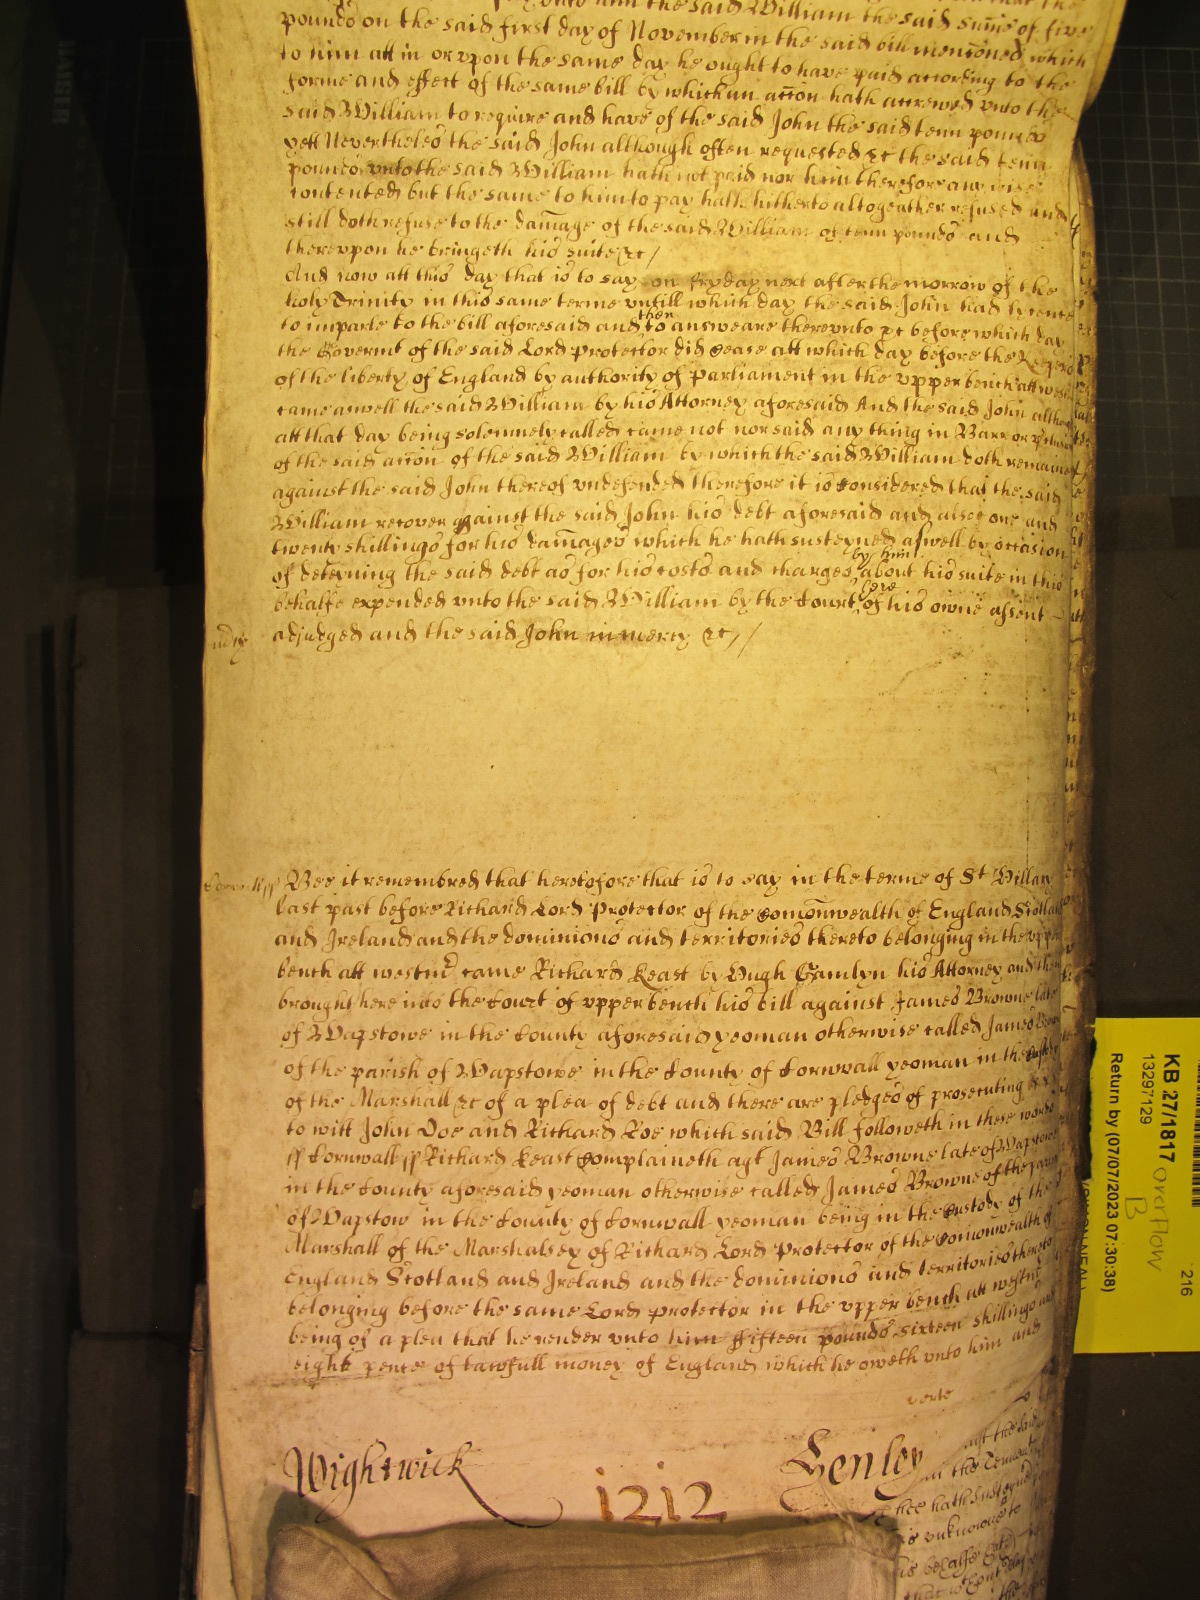 unto him the said William the said sume of five
pounds on the said first day of November in the said bill menconed which
to him att in or vpon the same day he ought to have paid according to the
forme and effect of the same bill by which an accon hath accrewed vnto the
said William to require and have of the said John the said tenn pounds
yett Nevertheles the said John although often requested &c the said tenn
pounds vnto the said William hath not paid nor him therefore any wise
contented but the same to him to pay hath hitherto altogeather refused and
still doth refuse to the damage of the said William of tenn pounds and
therevpon he bringeth his suite &c /
And now att this day that is to say on fryday next after the morrow of the
holy Trinity in this same terme vntill which day the said John had lycence
to imparle to the bill aforesaid and then to answeare therevnto &c before which day
the Govermt of the said Lord Protector did cease att which day before the Keepers
of the liberty of England by authority of Parliament in the vpper bench att west
came aswell the said William by his Attorney aforesaid And the said John although
att that day being solemnely called came not nor said any thing in Barr or
of the said accon of the said William by which the said William doth remaine
against the said John thereof vndefended therefore it is considered that the said
William recover against the said John his debt aforesaid and alsoe one and
twenty shillings for his damages which he hath susteyned aswell by occasion
of deteyning the said debt as for his costs and charges by him about his suite in this
behalfe expended vnto the said William by the Court here of his owne assent
adjudged and the said John in mercy &c //
Bee it remembred that heretofore that is to say in the terme of St Hillary
last past before Richard Lord Protector of the Comonwealth of England Scotland
and Ireland and the dominions and territories thereto belonging in the vpper
bench att westmr came Richard Keast by Hugh Gamlyn his Attorney and then
brought here into the Court of vpper bench his bill against James Browne late
of Wapstowe in the County aforesaid yeoman otherwise called James Browne
of the parish of Wapstowe in the County of Cornwall yeoman in the Custody
of the Marshall &c of a plea of debt and there are pledges of prosecuting
to witt John Doe and Richard Roe which said Bill followeth in these words
ss Cornwall ss Richard Keast Complaineth agt James Browne late of Wapstowe
in the County aforesaid yeoman otherwise called James Browne of the parish
of Wapstow in the County of Cornwall yeoman being in the Custody of the
Marshall of the Marshalsey of Richard Lord Protector of the Comonwealth of
England Scotland and Ireland and the dominions and territories thereto
belonging before the same Lord Protector in the vpper bench att westmr
being of a plea that he render vnto him ffifteen pounds sixteen shillings and
eight pence of lawfull money of England which he oweth vnto him and
verte
Wightwick 1212 Henley
agt the said
in the Tenement
hee hath susteyned
is vnknowne to
is behalfe
KB 27/1817 overflow
B
13297129
Return by (07/07/2023 07:30:38)
216